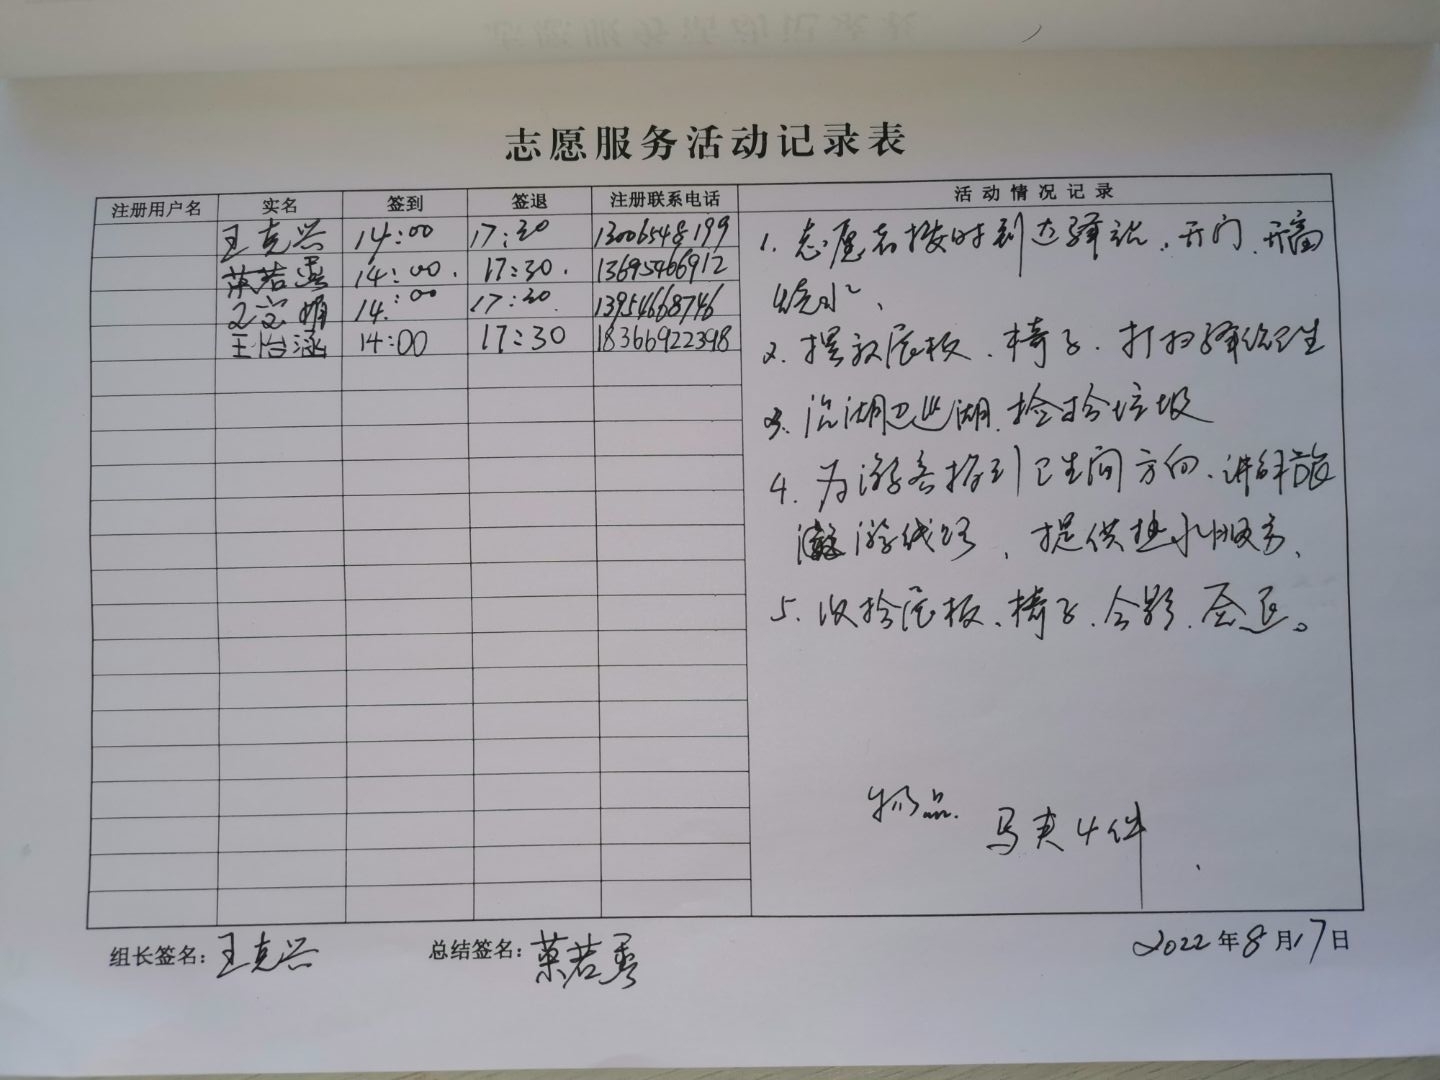 志愿服务活动记录表
注册用户名 实名 签到 签退 注册联系电话 活动情况记录
王克兴 14:00 17:30 13006548199
14:00. 17:30. 13695466912
14:00 17:30 13954668746
王怡涵 14:00 17:30 18366922398
1. 志愿者按时到达驿站、开门、开窗
烧水、
2. 摆放展板、椅子、打扫驿站卫生
3. 沿湖巡湖、捡拾垃圾
4. 为游客指引卫生间方向、讲解旅
游线路、提供热水服务、
5. 收拾展板、椅子、合影、签退。
物品.
马夹4件
组长签名: 王克兴 总结签名: 2022年8月17日